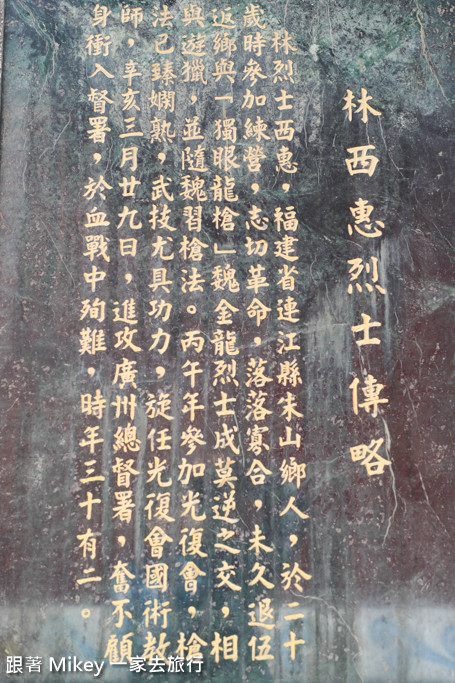 林西惠烈士傳略
林烈士西惠，福建省連江縣朱山鄉人，於二十
歲時參加練營，志切革命，落落寡合，未久退伍
返鄉與「獨眼龍槍」魏金龍烈士成莫逆之交，相
與遊獵，並隨魏習槍法。丙午年參加光復會，槍
法已臻嫻熟，武技尤具功力，旋任光復會國術教
師，辛亥三月廿九日，進攻廣州總督署，奮不顧
身衝入督署，於血戰中殉難，時年三十有二。
跟著 Mikey 一家去旅行